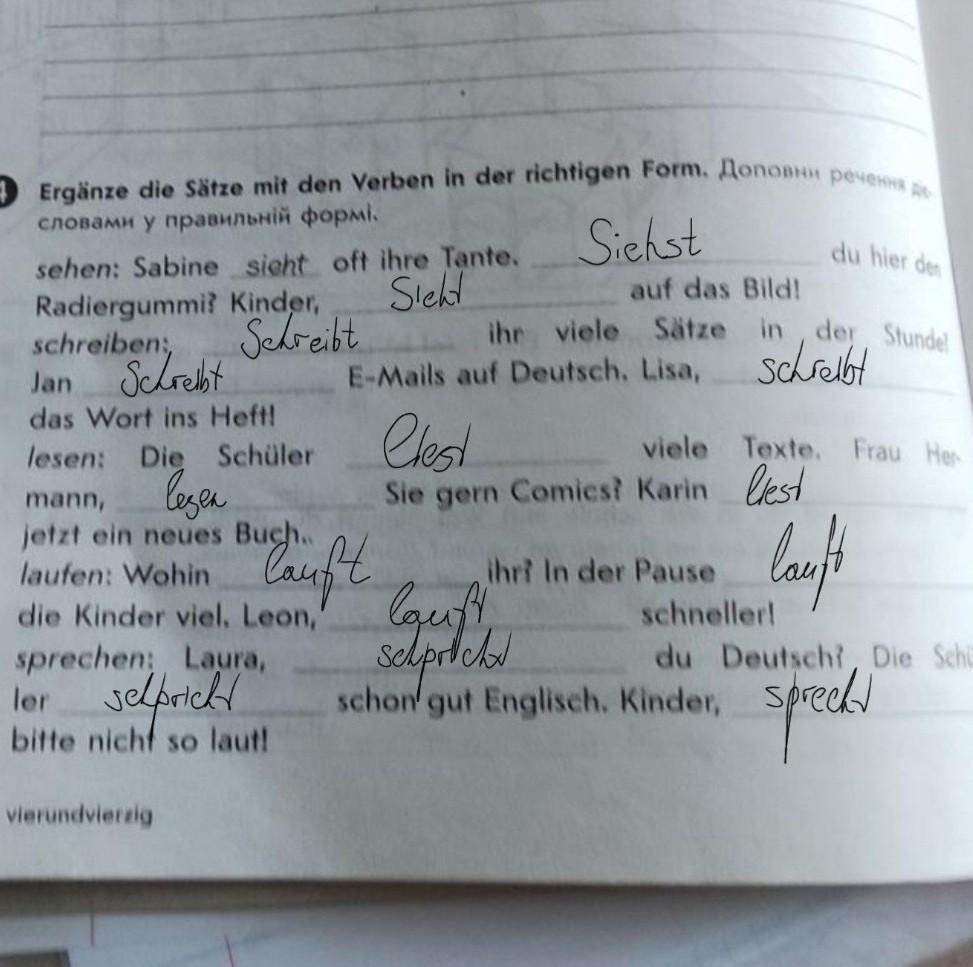 4 Ergänze die Sätze mit den Verben in der richtigen Form. Доповни речення діє-
словами у правильній формі.
sehen: Sabine sieht oft ihre Tante. Siehst du hier den
Radiergummi? Kinder, Sieht auf das Bild!
schreiben: Schreibt ihr viele Sätze in der Stunde?
Jan Schreibt E-Mails auf Deutsch. Lisa, schreibt
das Wort ins Heft!
lesen: Die Schüler liest viele Texte. Frau Her-
mann, lesen Sie gern Comics? Karin liest
jetzt ein neues Buch..
laufen: Wohin lauft ihr? In der Pause lauft
die Kinder viel. Leon, lauft schneller!
sprechen: Laura, schpricht du Deutsch? Die Schü
ler schpricht schon gut Englisch. Kinder, sprecht
bitte nicht so laut!
vierundvierzig